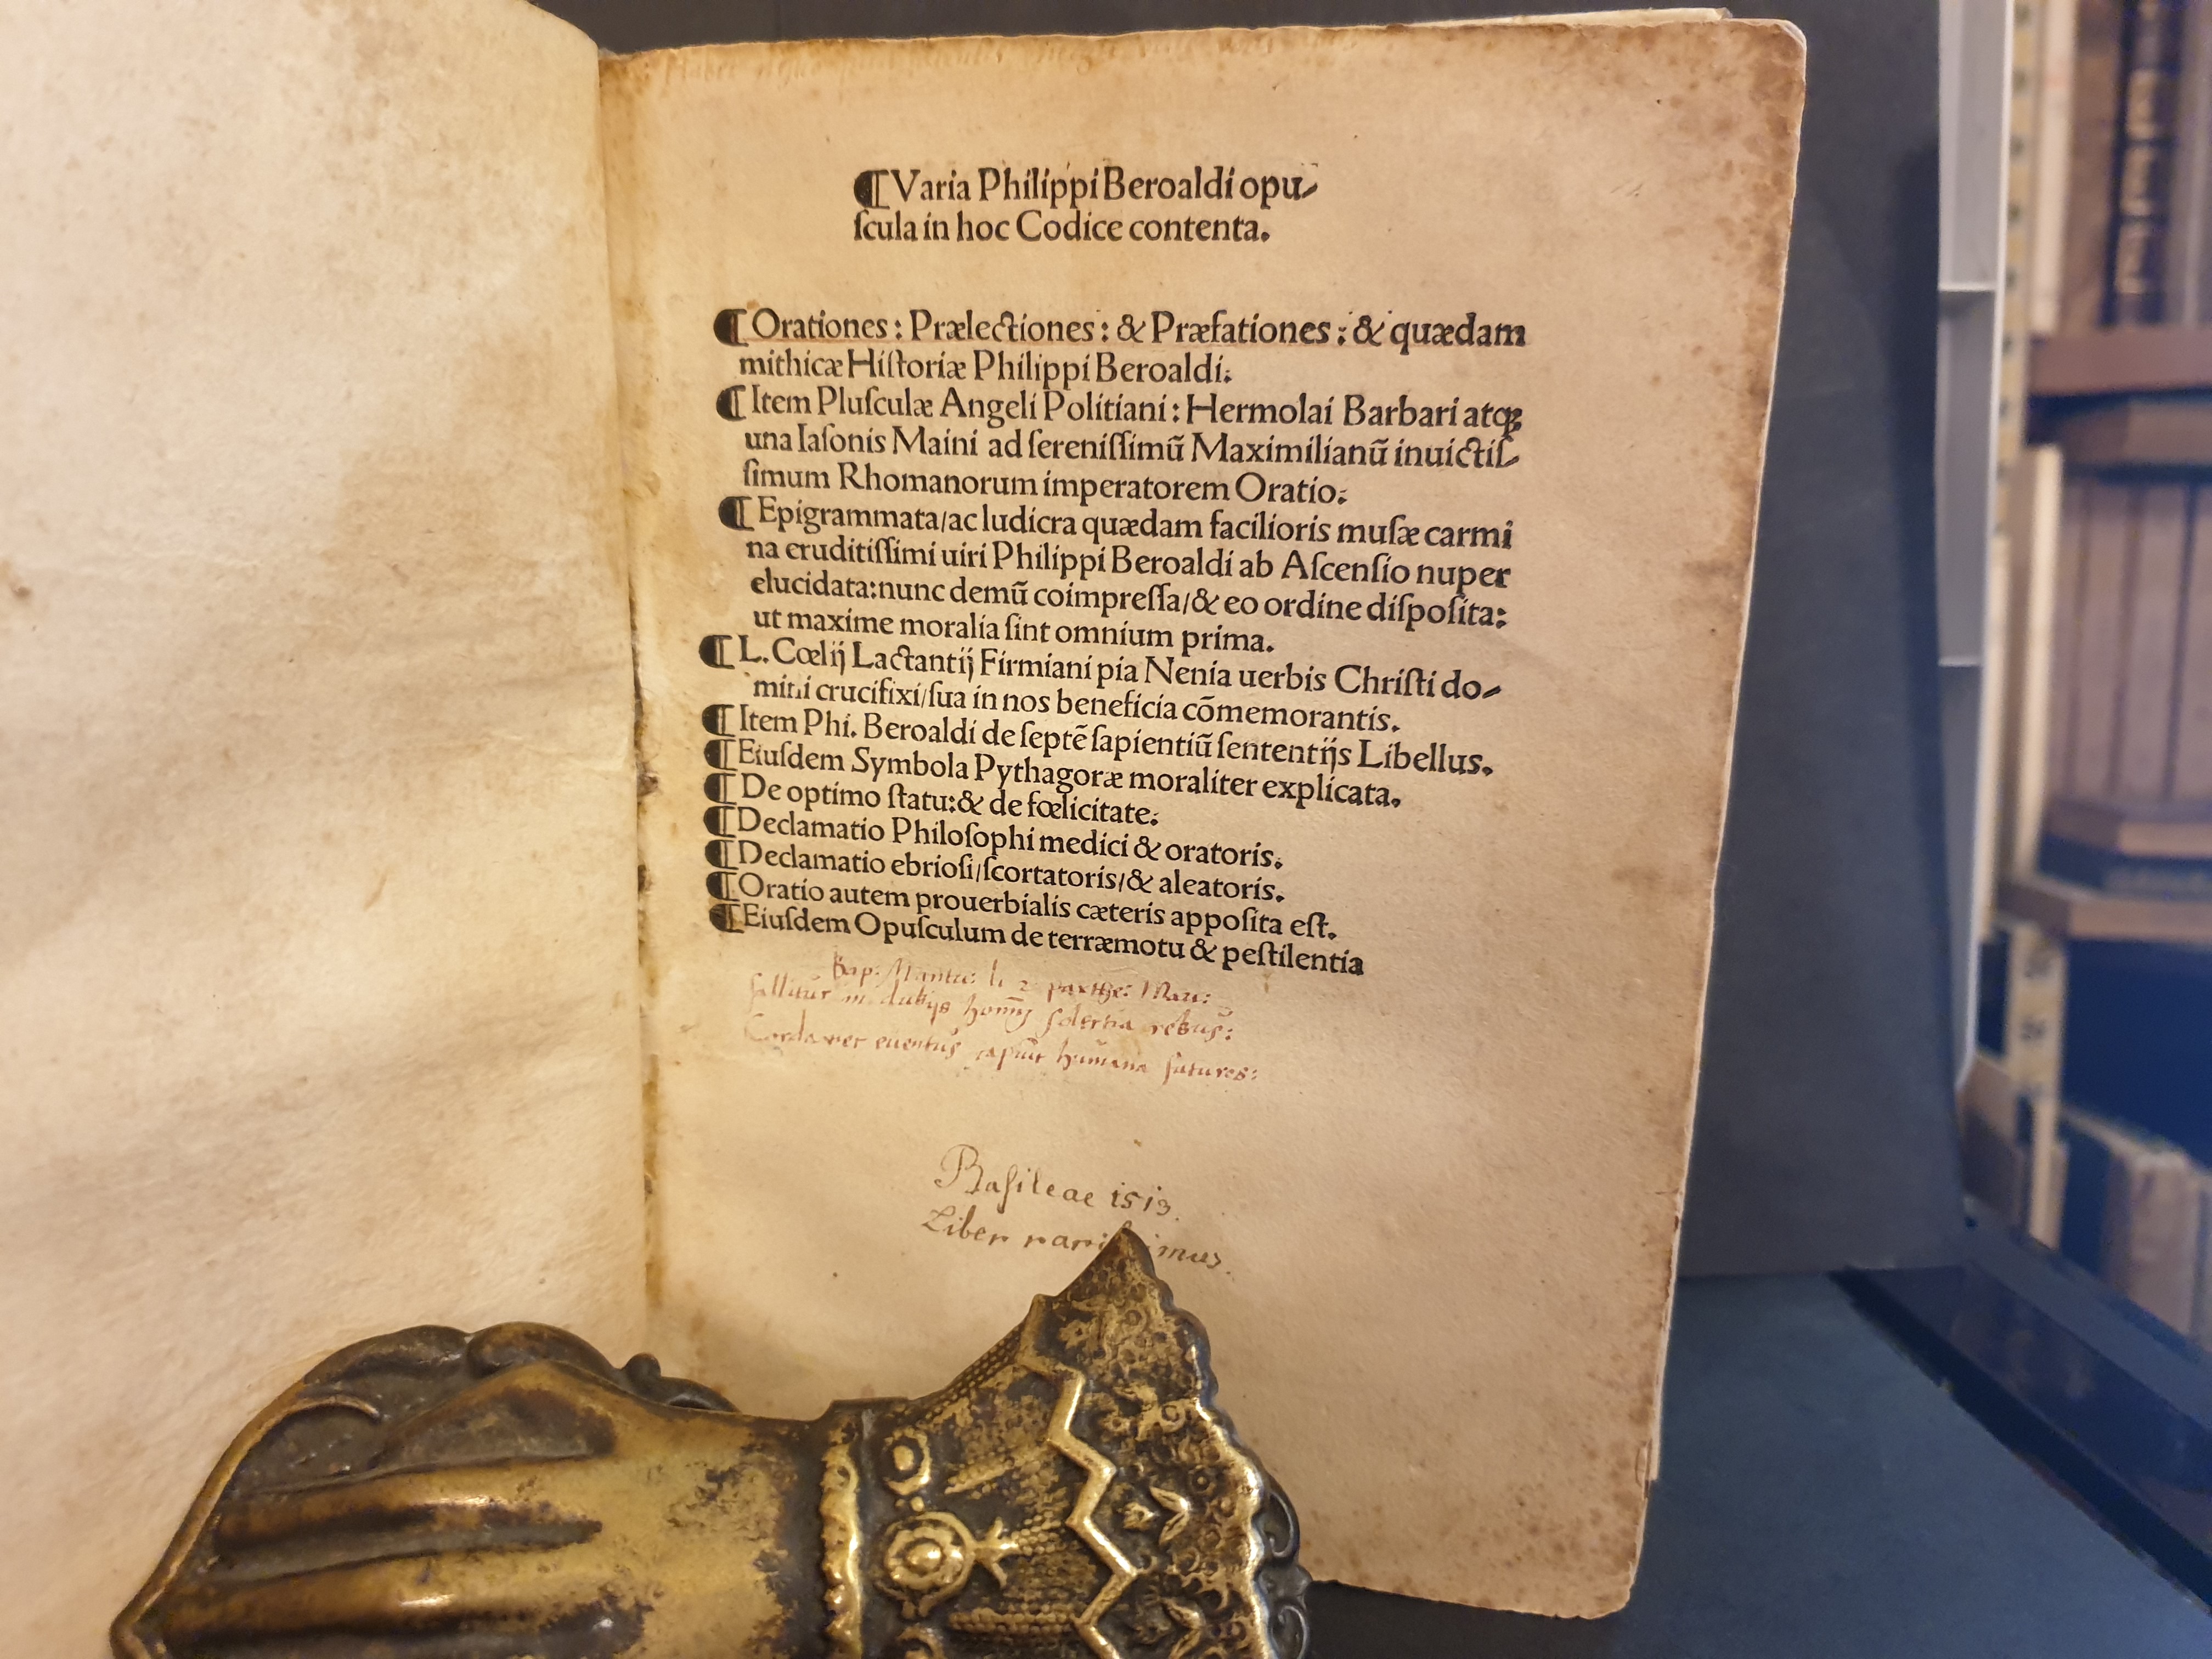 ¶ Varia Philippi Beroaldi opu-
ſcula in hoc Codice contenta.
¶ Orationes: Prælectiones: & Præfationes: & quædam
mithicæ Hiſtoriæ Philippi Beroaldi.
¶ Item Pluſculæ Angeli Politiani: Hermolai Barbari atqꝫ
una Iaſonis Maini ad ſereniſſimũ Maximilianũ inuictiſ-
ſimum Rhomanorum imperatorem Oratio.
¶ Epigrammata/ac ludicra quædam facilioris muſæ carmi
na eruditiſſimi uiri Philippi Beroaldi ab Aſcenſio nuper
elucidata:nunc demũ coimpreſſa/& eo ordine diſpoſita:
ut maxime moralia ſint omnium prima.
¶ L. Cœlij Lactantij Firmiani pia Nenia uerbis Chriſti do-
mini crucifixi/ſua in nos beneficia cõmemorantis.
¶ Item Phi. Beroaldi de ſeptẽ ſapientiũ ſententijs Libellus.
¶ Eiuſdem Symbola Pythagoræ moraliter explicata.
¶ De optimo ſtatu:& de fœlicitate.
¶ Declamatio Philoſophi medici & oratoris.
¶ Declamatio ebrioſi/ſcortatoris/& aleatoris.
¶ Oratio autem prouerbialis cæteris appoſita eſt.
¶ Eiuſdem Opuſculum de terræmotu & peſtilentia
Bap: Mantu: li 2 parthe: Mari:
fallitur in dubijs solertia rebus:
euentus humana futuros:
Baſileae 1513.
Liber